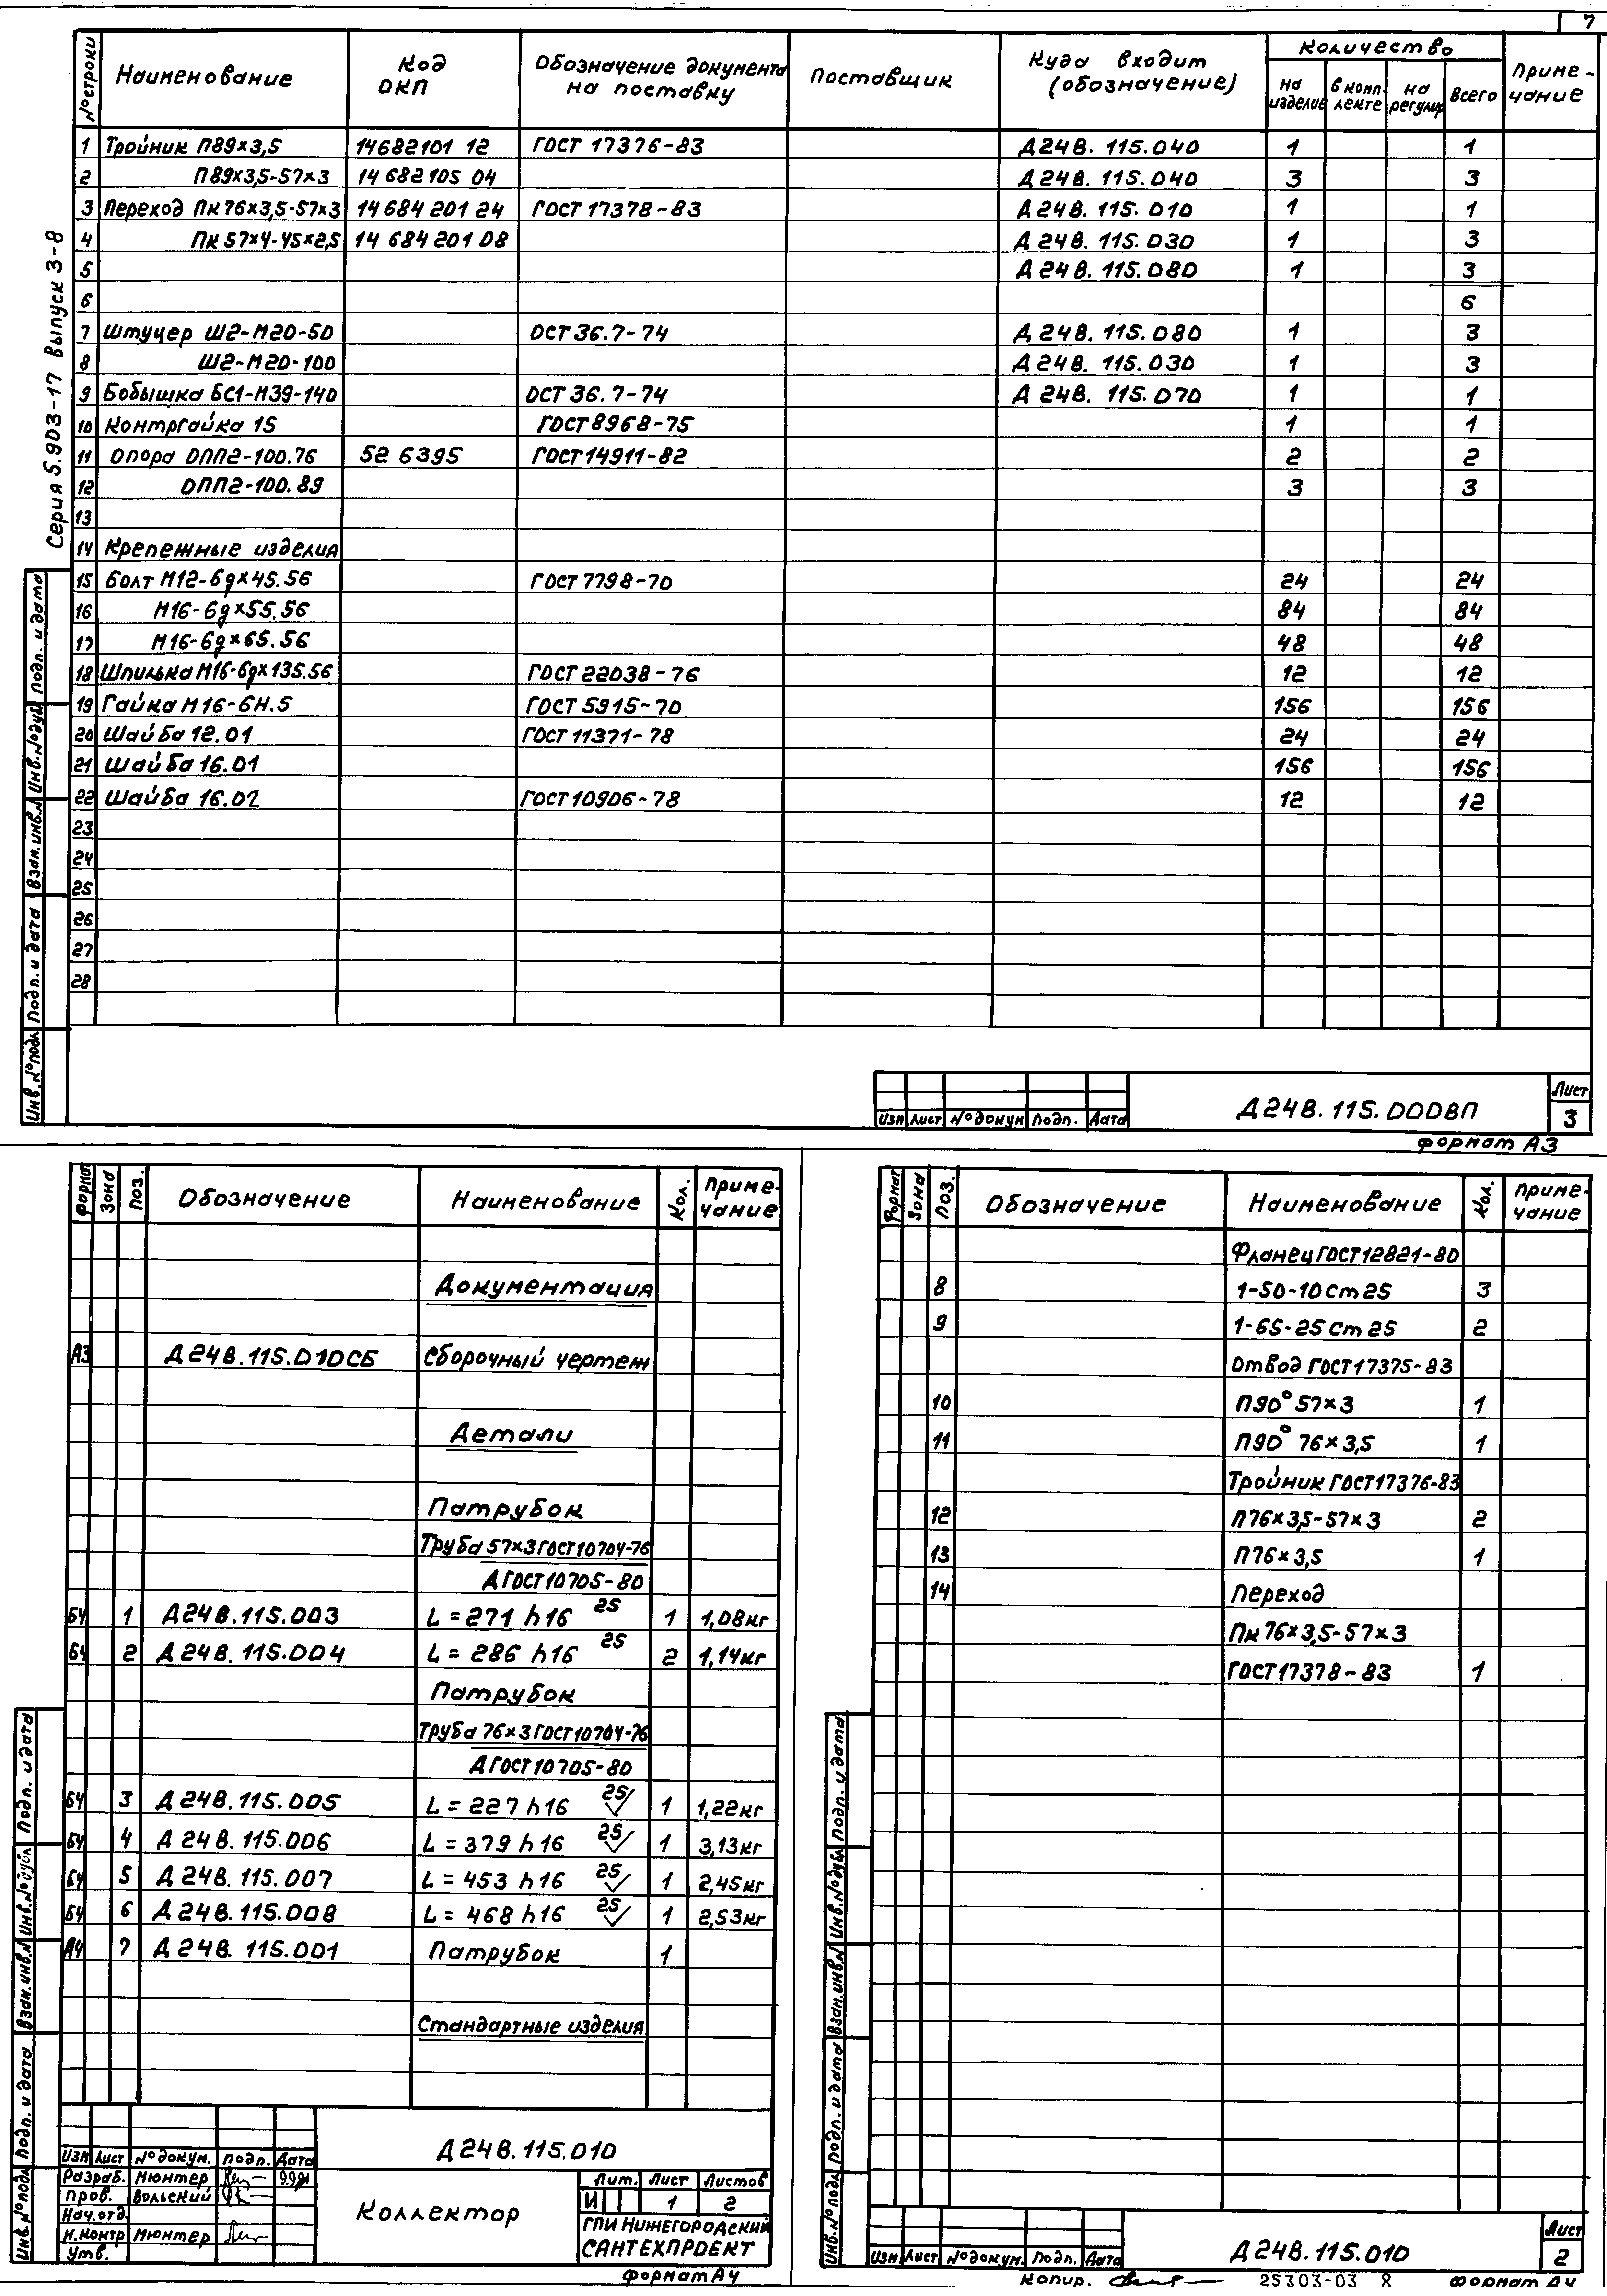 7
№ строки Наименование Код ОКП Обозначение документа на поставку Поставщик Куда входит (обозначение) Количество на изделие в комплекте на регулир Всего Примечание
1 Тройник П89×3,5 14682101 12 ГОСТ 17376-83 Д24В. 115.040 1 1
2 П89×3,5-57×3 14 682105 04 Д24В. 115.040 3 3
3 Переход Пк 76×3,5-57×3 14 684 201 24 ГОСТ 17378-83 Д24В. 115.010 1 1
4 Пк 57×4-45×2,5 14 684 201 08 Д24В. 115.030 1 3
5 Д24В. 115.080 1 3
6 6
7 Штуцер Ш2-М20-50 ОСТ 36.7-74 Д24В. 115.080 1 3
8 Ш2-М20-100 Д24В. 115.030 1 3
9 Бобышка БС1-М39-140 ОСТ 36.7-74 Д24В. 115.070 1 1
10 Контргайка 15 ГОСТ 8968-75 1 1
11 Опора ОПП2-100.76 52 6395 ГОСТ 14911-82 2 2
12 ОПП2-100.89 3 3
13
14 Крепежные изделия
15 Болт М12-6g×45.56 ГОСТ 7798-70 24 24
16 М16-6g×55.56 84 84
17 М16-6g×65.56 48 48
18 Шпилька М16-6g×135.56 ГОСТ 22038-76 12 12
19 Гайка М16-6Н.5 ГОСТ 5915-70 156 156
20 Шайба 12.01 ГОСТ 11371-78 24 24
21 Шайба 16.01 156 156
22 Шайба 16.02 ГОСТ 10906-78 12 12
23
24
25
26
27
28
Серия 5.903-17 Выпуск 3-8
Инв. № подл Подп. и дата Взам. инв. № Инв. № дубл Подп. и дата
Изм Лист № докум Подп. Дата
Д24В. 115.000ВП
Лист
3
Формат А3
Формат Зона Поз. Обозначение Наименование Кол. Примечание
Документация
А3 Д24В.115.010СБ Сборочный чертеж
Детали
Патрубок
Труба 57×3 ГОСТ 10704-76
Д ГОСТ 10705-80
БЧ 1 Д24В.115.003 L = 271 h16 25 1 1,08кг
БЧ 2 Д24В.115.004 L = 286 h16 25 2 1,14кг
Патрубок
Труба 76×3 ГОСТ 10704-76
Д ГОСТ 10705-80
БЧ 3 Д24В.115.005 L = 227 h16 25 1 1,22кг
БЧ 4 Д24В.115.006 L = 379 h16 25 1 3,13кг
БЧ 5 Д24В.115.007 L = 453 h16 25 1 2,45кг
БЧ 6 Д24В.115.008 L = 468 h16 25 1 2,53кг
А4 7 Д24В.115.001 Патрубок 1
Стандартные изделия
Инв. № подл Подп. и дата Взам. инв. № Инв. № дубл Подп. и дата
Изм Лист № докум. Подп. Дата
Разраб. Мюнтер 9.91
Пров. Вольский
Нач.отд.
Н.контр Мюнтер
Утв.
Д24В.115.010
Коллектор
Лит. Лист Листов
И 1 2
ГПИ Нижегородский
САНТЕХПРОЕКТ
Формат А4
Формат Зона Поз. Обозначение Наименование Кол. Примечание
Фланец ГОСТ 12821-80
8 1-50-10 ст 25 3
9 1-65-25 ст 25 2
Отвод ГОСТ 17375-83
10 П90° 57×3 1
11 П90° 76×3,5 1
Тройник ГОСТ 17376-83
12 П76×3,5-57×3 2
13 П76×3,5 1
14 Переход
Пк 76×3,5-57×3
ГОСТ 17378-83 1
Инв. № подл Подп. и дата Взам. инв. № Инв. № дубл Подп. и дата
Изм. Лист № докум. Подп. Дата
Д24В.115.010
Лист
2
Копир. 25303-03 8 Формат А4